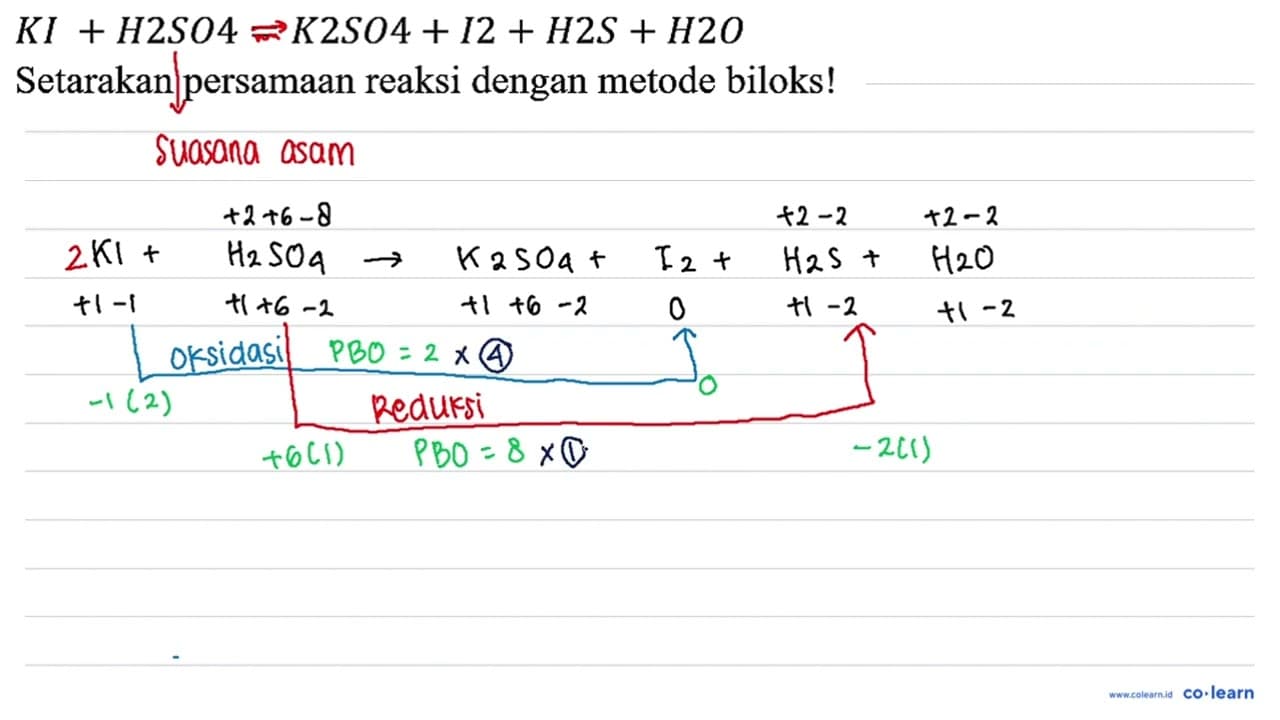 KI + H2SO4 ⇌ K2SO4 + I2 + H2S + H2O
Setarakan persamaan reaksi dengan metode biloks!
Suasana asam
+2 +6 -8 +2 -2 +2 -2
2KI + H2SO4 → K2SO4 + I2 + H2S + H2O
+1 -1 +1 +6 -2 +1 +6 -2 0 +1 -2 +1 -2
Oksidasi PBO = 2 x 4
-1 (2) 0
Reduksi
+6(1) PBO = 8 x 1 -2(1)
www.colearn.id co·learn